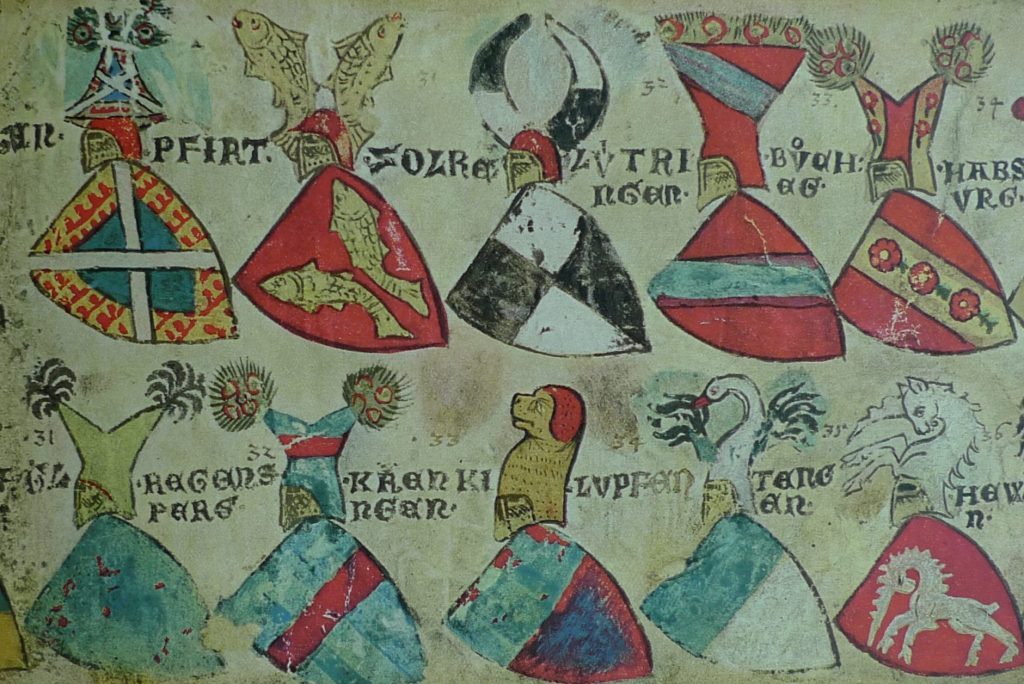 PFIRT·
31
·ZOLRE
LŮTRI
NGEN·
32
·BŮCH:
EG·
33
34
·HABS
VRG·
31
·REGENS
PERG
32
·KRENKI
NGEN·
33
LVPFEN
34
TENG
EN·
35
HEW
N·
36